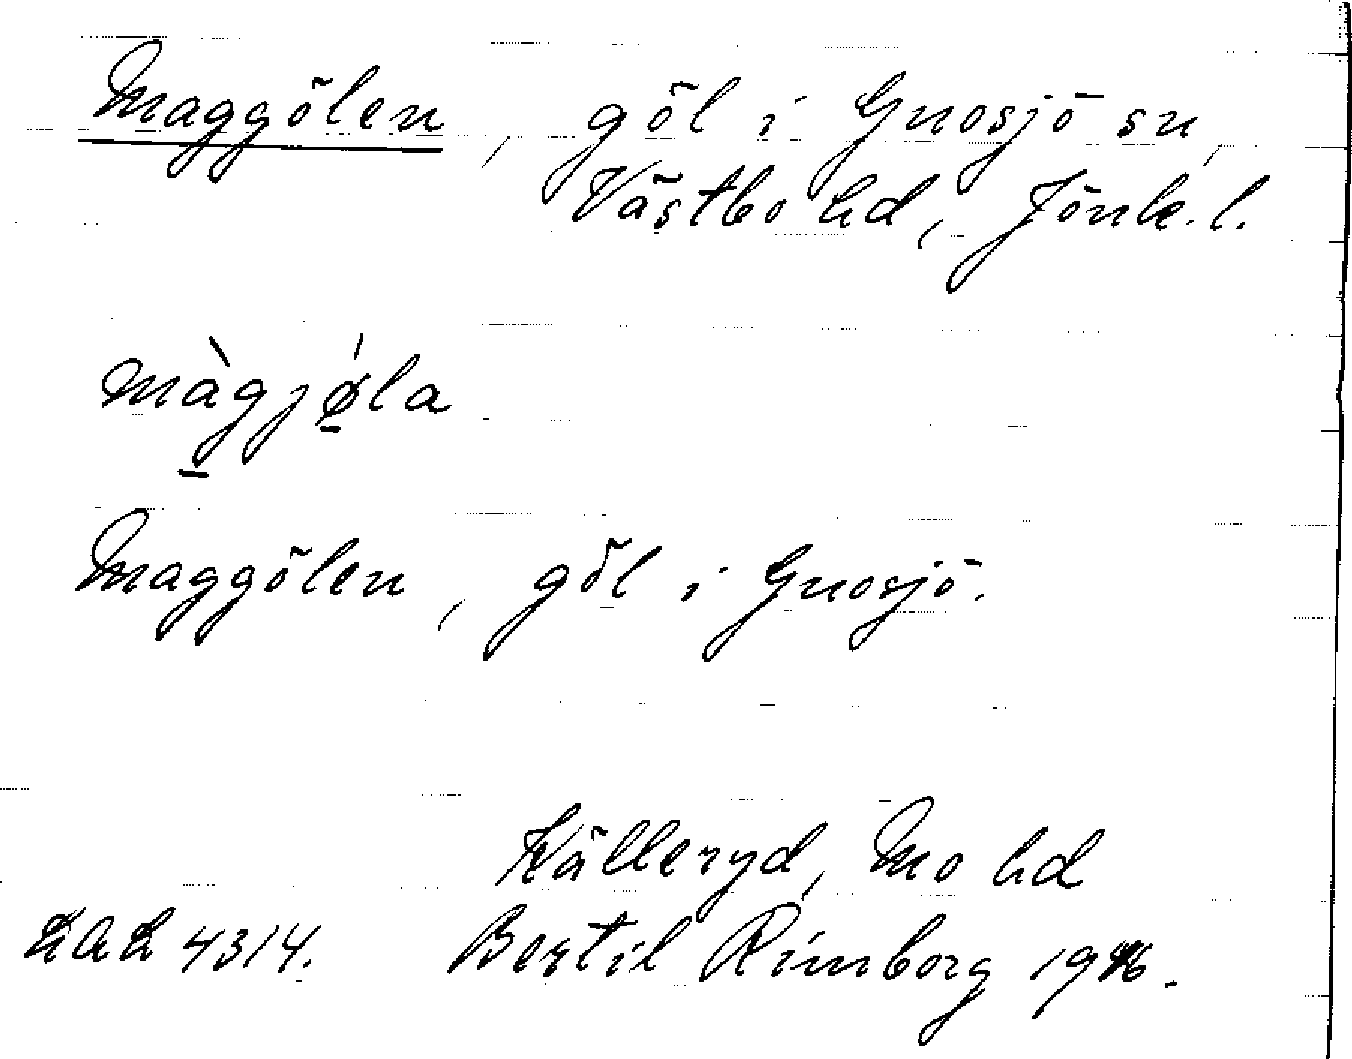 Maggölen, göl i Gnosjö sn,
Västbo hd, Jönk. l.
màgjø̀la
Maggölen, göl i Gnosjö.
Källeryd, Mo hd
LAL 4314. Bertil Rimborg 1946.